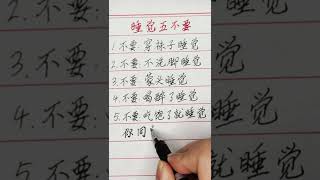 睡觉五不要
1.不要:穿袜子睡觉
2.不要:不洗脚睡觉
3.不要:蒙头睡觉
4.不要:喝醉了睡觉
5.不要:吃饱了就睡觉
你同